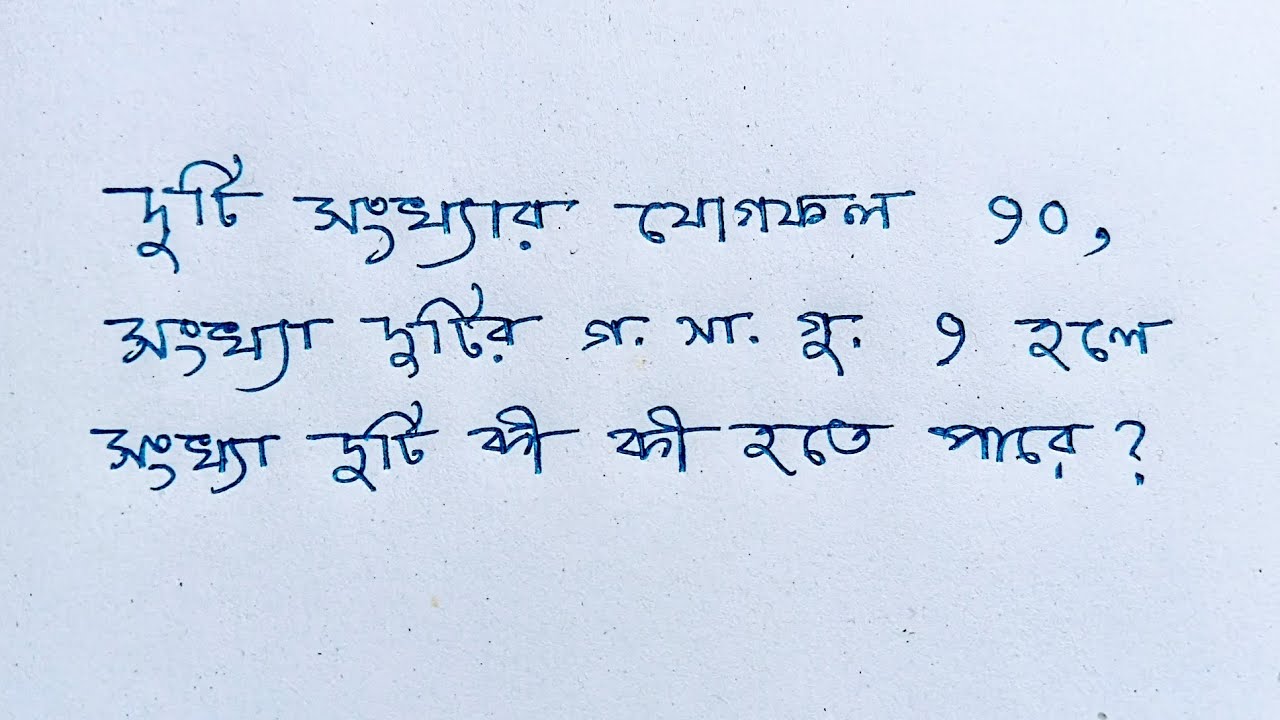 দুটি সংখ্যার যোগফল ১০,
সংখ্যা দুটির গ. সা. গু. ১ হলে
সংখ্যা দুটি কী কী হতে পারে?